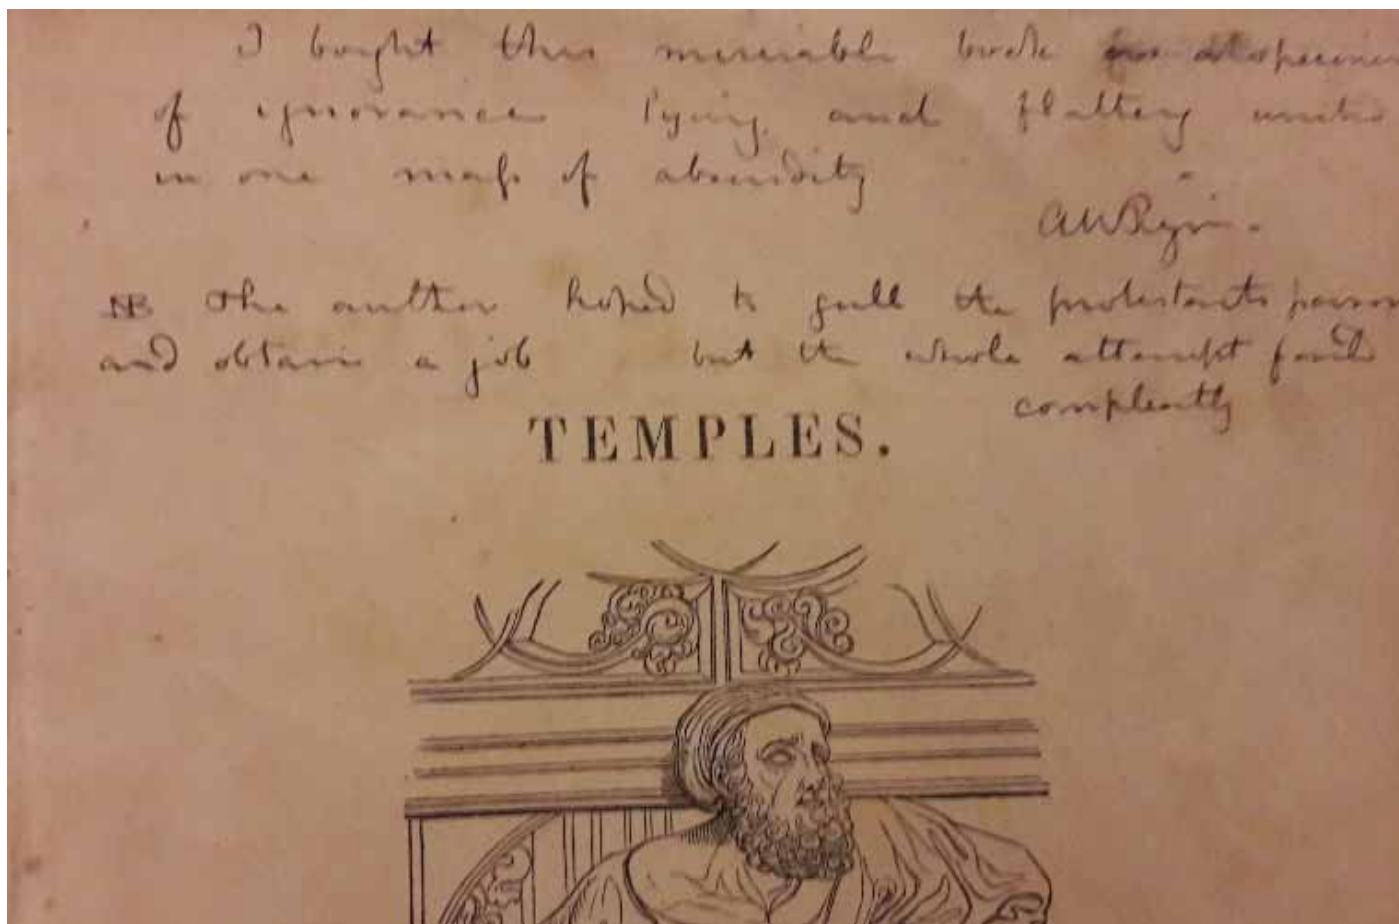 I bought this miserable book as a specimen
of ignorance lying and flattery united
in one mass of absurdity
AWPugin.
NB The author hoped to gull the protestants parsons
and obtain a job but the whole attempt failed
compleatly
TEMPLES.